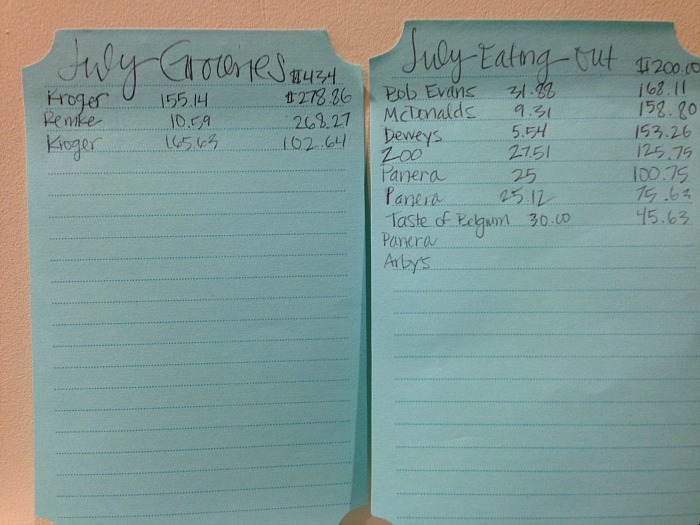 July Groceries $434
Kroger 155.14 $278.86
Remke 10.59 268.27
Kroger 165.63 102.64
July Eating Out $200.00
Bob Evans 31.88 168.11
McDonalds 9.31 158.80
Deweys 5.54 153.26
Zoo 27.51 125.75
Panera 25 100.75
Panera 25.12 75.63
Taste of Belgium 30.00 45.63
Panera
Arbys